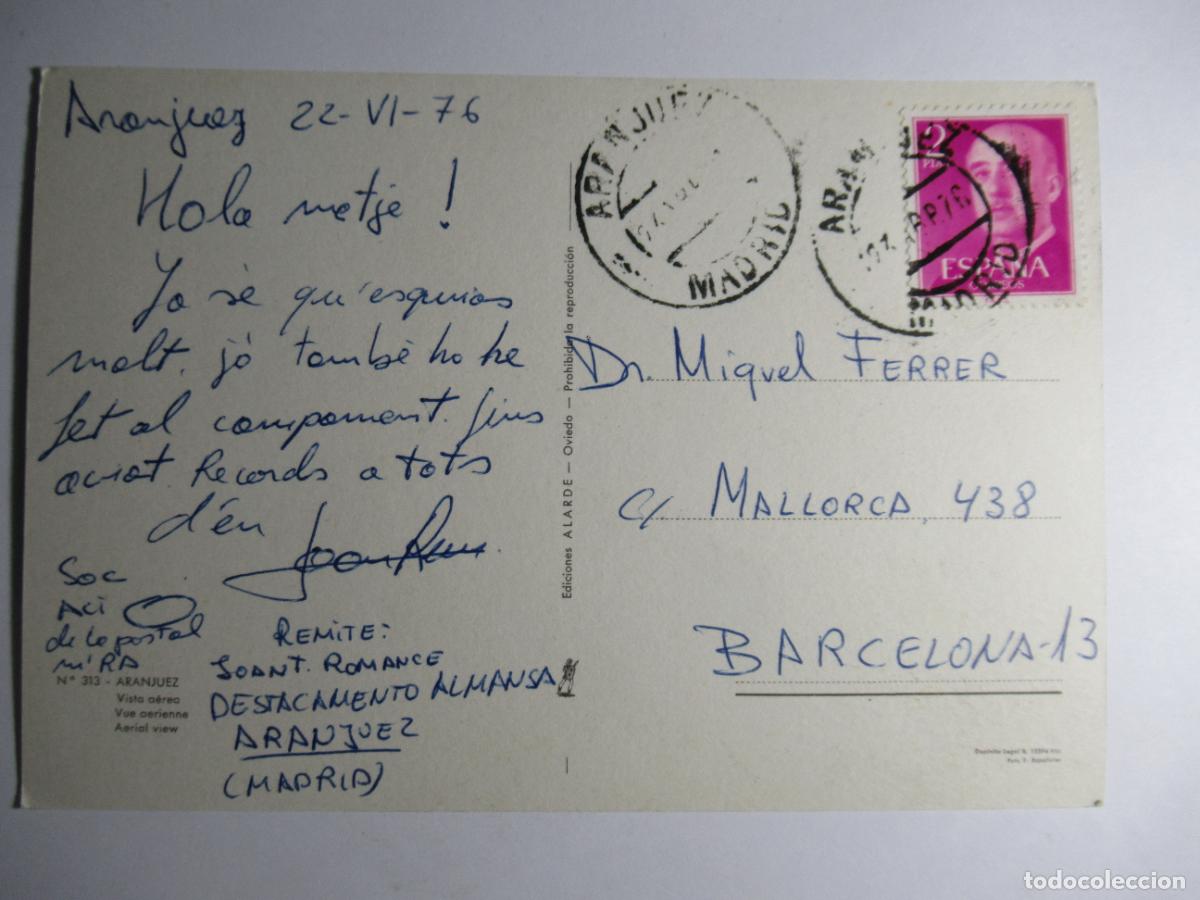 Aranjuez 22-VI-76
Hola metje!
Jo sé qu'esquias
molt. jó també ho he
fet al campament. fins
aviat. Records a tots
d'en
Soc
ACI
de la postal
MIRA
REMITE:
JOAN T. ROMANCE
DESTACAMENTO ALMANSA
ARANJUEZ
(MADRID)
Nº 313 - ARANJUEZ
Vista aérea
Vue aerienne
Aerial view
Ediciones ALARDE - Oviedo - Prohibida la reproducción
ARANJUEZ
MADRID
2
PTAS
ESPAÑA
CORREOS
MADRID
Dr. Miquel FERRER
c/ MALLORCA, 438
BARCELONA-13
todocoleccion